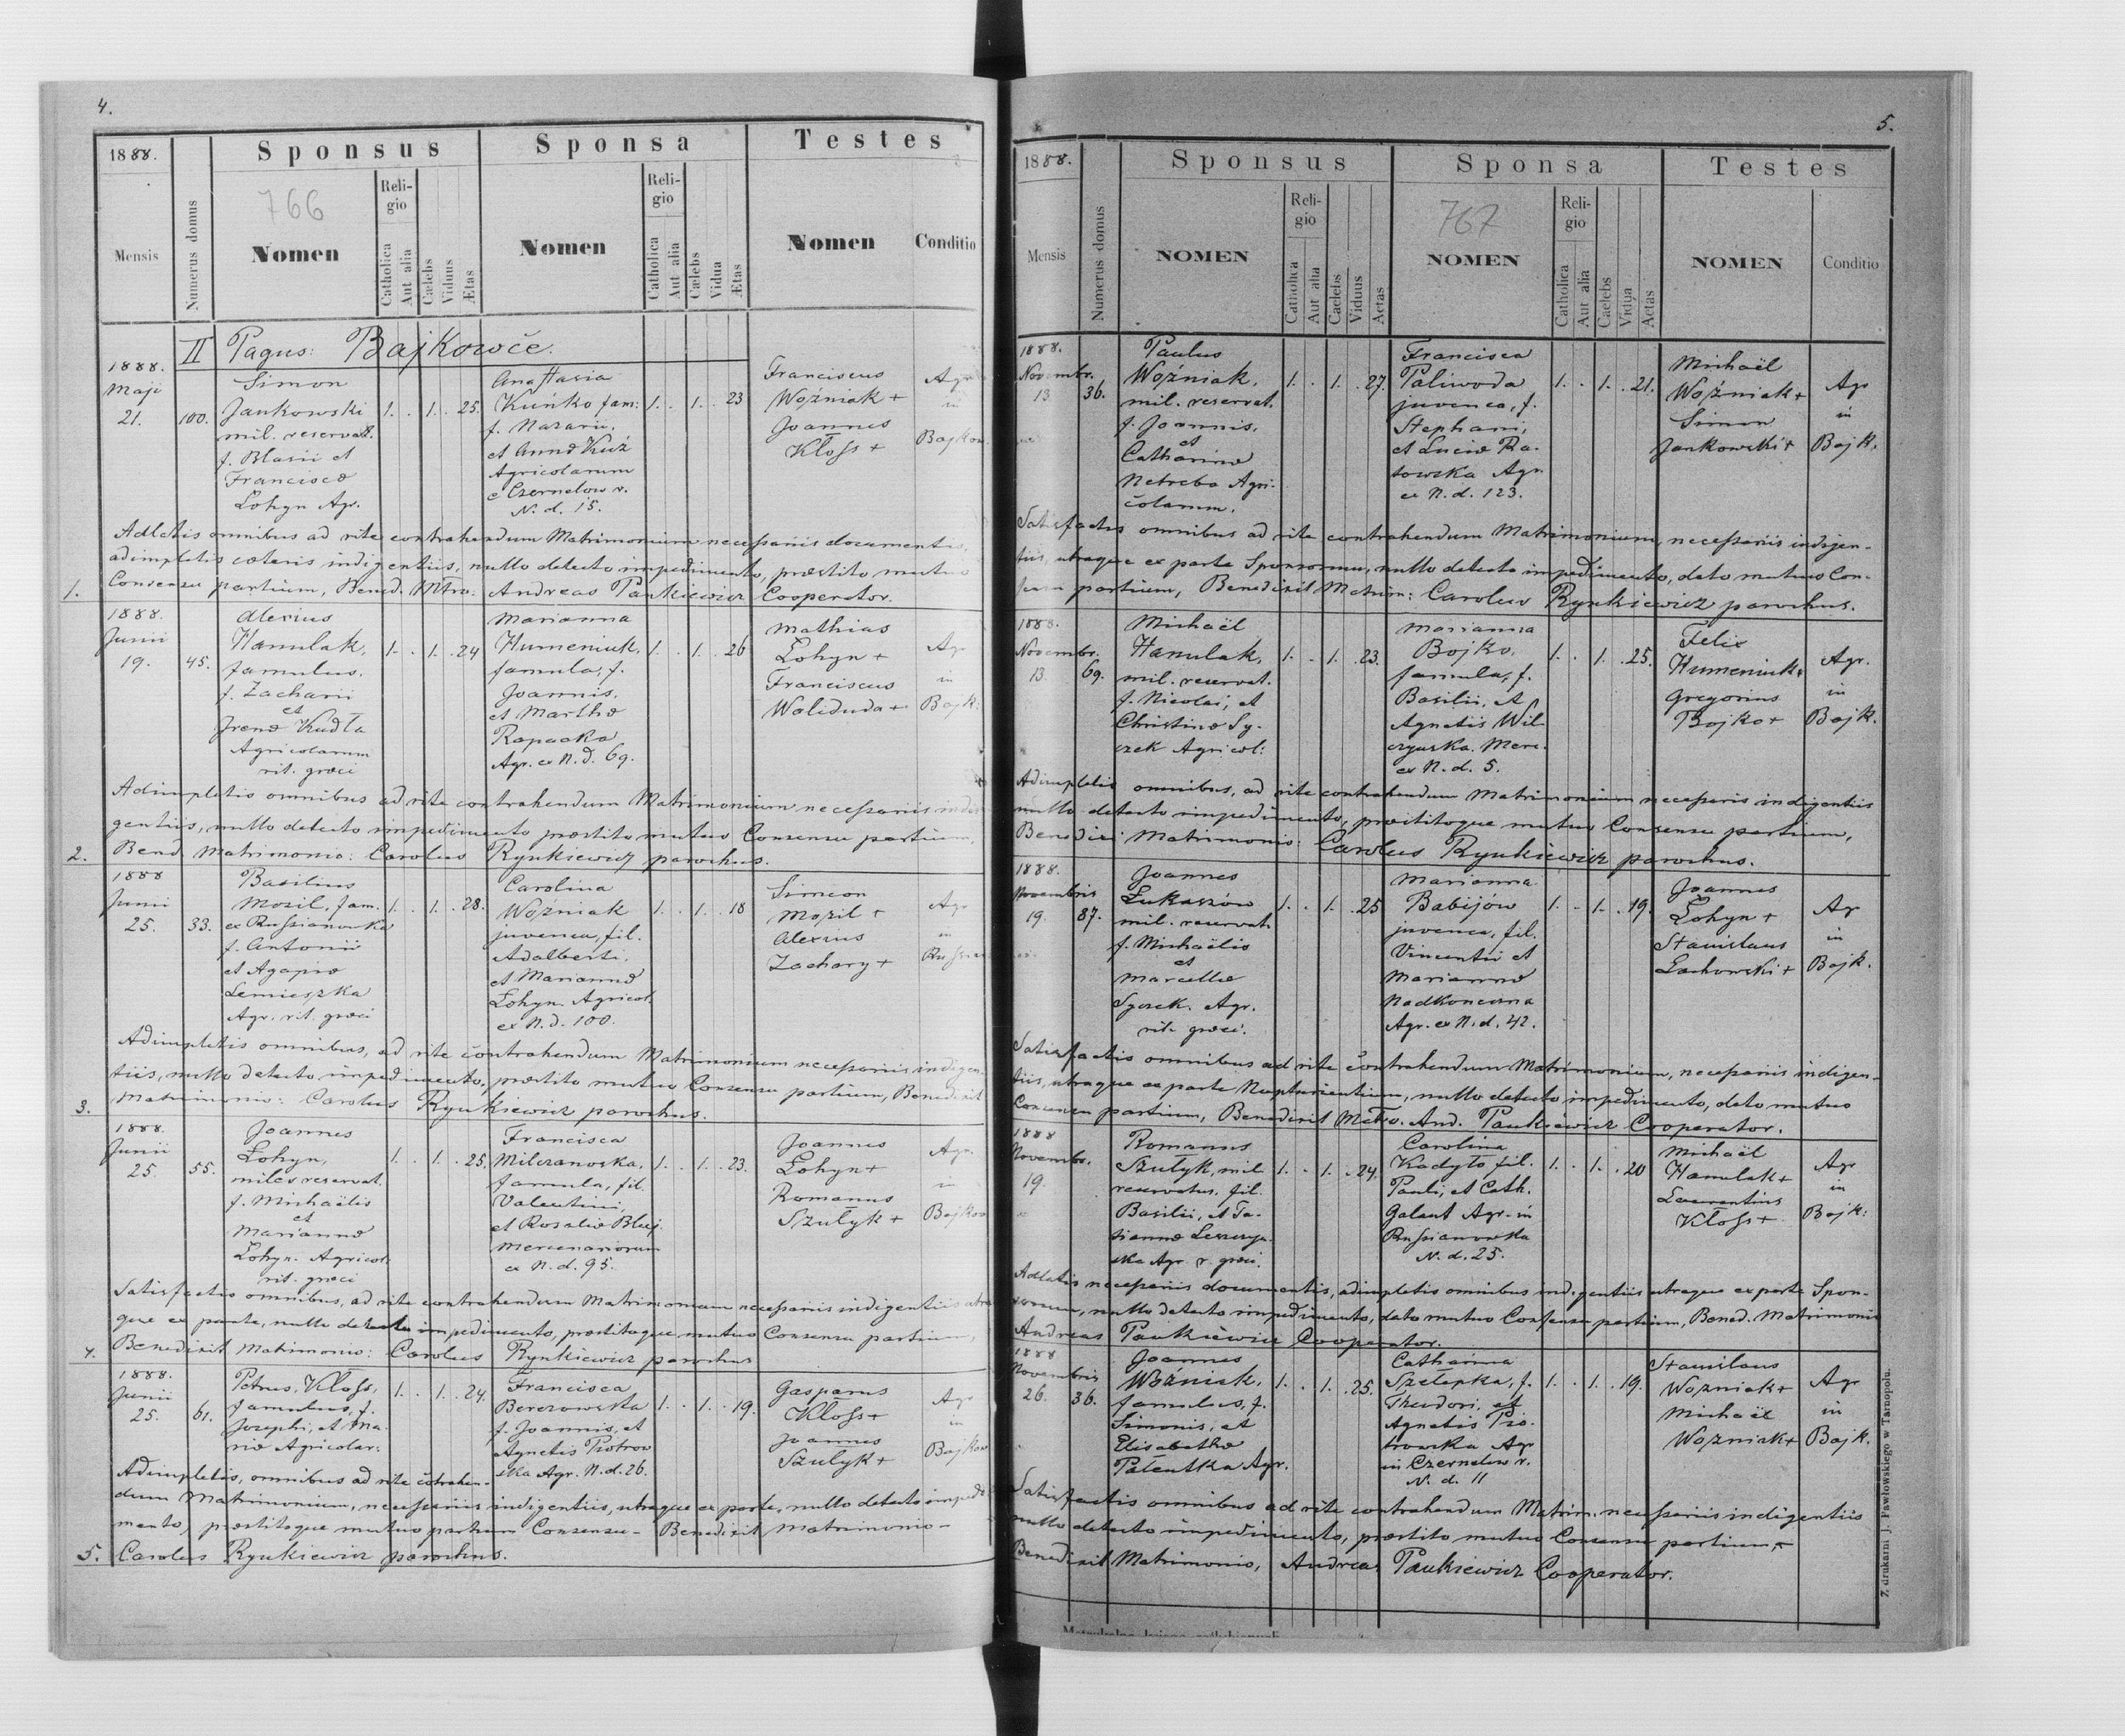 4.
1888.
Sponsus
Sponsa
Testes
Mensis
Numerus domus
766
Nomen
Religio
Catholica
Aut alia
Cælebs
Viduus
Ætas
Nomen
Religio
Catholica
Aut alia
Cælebs
Vidua
Ætas
Nomen
Conditio
II Pagus: Bajkowce.
1888.
Maji
21.
100.
Simon
Jankowski
mil. reservat.
f. Blasii et
Franciscæ
Łohyn Agr.
1. . 1. . 25.
Anastasia
Kuńko fam:
f. Nazarii,
et Annæ Kuź
Agricolarum
e Czernelow r.
N. d. 15.
1. . 1. . 23
Franciscus
Woźniak +
Joannes
Kłoss +
Agr
in
Bajkow
Adlatis omnibus ad rite contrahendum Matrimonium necessariis documentis,
adimpletis cæteris indigentiis, nullo detecto impedimento, præstito mutuo
1. Consensu partium, Bened. Mtro: Andreas Paukiewicz Cooperator.
1888.
Junii
19.
45.
Alexius
Hamulak,
famulus,
f. Zacharii
et
Irenæ Kudła
Agricolarum
rit. græci
1. . 1. . 24
Marianna
Humeniuk,
famula, f.
Joannis,
et Marthæ
Rapacka
Agr. ex N. d. 69.
1. . 1. . 26
Mathias
Łohyn +
Franciscus
Waliduda +
Agr
in
Bajk:
Adimpletis omnibus ad rite contrahendum Matrimonium necessariis indi
gentiis, nullo detecto impedimento præstito mutuo Consensu partium,
2. Bend. Matrimonio: Carolus Rynkiewicz parochus.
1888
Junii
25.
33.
Basilius
Mozil, fam.
ex Russianowka
f. Antonii
et Agapiæ
Lemieszka
Agr. rit. græci
1. . 1. . 28.
Carolina
Woźniak
juvenca, fil.
Adalberti,
et Mariannæ
Łohyn Agricol.
ex N. d. 100.
1. . 1. . 18
Simeon
Mozil +
Alexius
Zachary +
Agr
in
Russian
Adimpletis omnibus, ad rite contrahendum Matrimonium necessariis indigen-
tiis, nullo detecto impedimento, præstito mutuo Consensu partium, Benedixit
3. Matrimonio: Carolus Rynkiewicz parochus.
1888.
Junii
25.
55.
Joannes
Łohyn,
miles reservat.
f. Michaëlis
et
Mariannæ
Łohyn. Agricol:
rit. græci
1. . 1. . 25.
Francisca
Milczanowska,
famula, fil.
Valentini,
et Rosaliæ Bluj.
mercenariorum
ex N. d. 95.
1. . 1. . 23.
Joannes
Łohyn +
Romanus
Szułyk +
Agr.
in
Bajkow
Satisfactis omnibus, ad rite contrahendum Matrimonium necessariis indigentiis utra
que ex parte, nullo detecto impedimento, præstitoque mutuo Consensu partium,
4. Benedixit Matrimonio: Carolus Rynkiewicz parochus
1888.
Junii
25.
61.
Petrus Kłoss,
famulus, f.
Josephi, et Ma-
riæ Agricolar:
1. . 1. . 24.
Francisca
Berezowska
f. Joannis, et
Agnetis Piotrow
ska Agr. N. d. 26.
1. . 1. . 19.
Gasparus
Kloss +
Joannes
Szulyk +
Agr
in
Bajkow
Adimpletis, omnibus ad rite cŏtrahen-
dum Matrimonium, necessariis indigentiis, utraque ex parte, nullo detecto impedi
mento, præstitoque mutuo partium Consensu - Benedixit Matrimonio -
5. Carolus Rynkiewicz parochus.
5.
1888.
Sponsus
Sponsa
Testes
Mensis
Numerus domus
NOMEN
Religio
Catholica
Aut alia
Caelebs
Viduus
Aetas
767
NOMEN
Religio
Catholica
Aut alia
Caelebs
Vidua
Aetas
NOMEN
Conditio
1888.
Novembr.
13
36.
Paulus
Woźniak,
mil. reservat.
f. Joannis,
et
Catharinæ
Netreba Agri-
colarum.
1. . 1. . 27.
Francisca
Paliwoda
juvenca, f.
Stephani,
et Luciæ Ra-
towska Agr.
ex N. d. 123.
1. . 1. . 21.
Michaël
Woźniak +
Simon
Jankowski +
Agr
in
Bajk.
Satisfactis omnibus ad rite contrahendum Matrimonium, necessariis indigen-
tiis, utraque ex parte Sponsorum, nullo detecto impedimento, dato mutuo Con-
sensu partium, Benedixit Matrim: Carolus Rynkiewicz parochus.
1888.
Novembr.
13
69.
Michaël
Hamulak,
mil. reservat.
f. Nicolai, et
Christinæ Sy-
czek Agricol:
1. . 1. . 23.
Marianna
Bojko,
famula, f.
Basilii, et
Agnetis Wil-
czyńska. Merc.
ex N. d. 5.
1. . 1. . 25.
Felix
Humeniuk +
Gregorius
Bojko +
Agr.
in
Bajk.
Adimpletis omnibus, ad rite contrahendum Matrimonium necesaris indigentiis
nullo detecto impedimento, præstitoque mutuo Consensu partium,
Benedixi Matrimonio: Carolus Rynkiewicz parochus.
1888.
Novembris
19.
87.
Joannes
Łukaszów
mil. reservat.
f. Michaëlis
et
Marcellæ
Syczek. Agr.
rit. græci.
1. . 1. . 25
Marianna
Babijów
juvenca, fil.
Vincentii et
Mariannæ
Nadkonczna
Agr. ex N. d. 42.
1. . 1. . 19.
Joannes
Łohyn +
Stanislaus
Lachowski +
Agr
in
Bajk.
Satisfactis omnibus ad rite contrahendum Matrimonium, necessariis indigen-
tiis, utraque ex parte Nupturientium, nullo detecto impedimento, dato mutuo
Consensu partium, Benedixit Mtro. And. Paukiewicz Cooperator.
1888
Novembr.
19.
Romanus
Szułyk, mil
reservatus. fil.
Basilii, et Ta-
tiannæ Leszczyn-
ska Agr r. græci.
1. . 1. . 24.
Carolina
Kadyło fil.
Pauli, et Cath.
Galant Agr. in
Russianowka
N. d. 25.
1. . 1. . 20
Michaël
Hamulak +
Laurentius
Kłoss +
Agr
in
Bajk:
Adlatis necessariis documentis, adimpletis omnibus indigentiis utraque ex parte Spon-
sorum, nullo detecto impedimento, dato mutuo Consensu partium, Bened. Matrimonio
Andreas Paukiewicz Cooperator.
1888
Novembris
26.
36.
Joannes
Woźniak,
famulus, f.
Simonis, et
Elisabethæ
Patentka Agr.
1. . 1. . 25.
Catharina
Szelepka, f.
Theodori, et
Agnetis Pio-
trowska Agr
in Czernelow r.
N. d. 11
1. . 1. . 19.
Stanislaus
Wozniak +
Michaël
Wozniak +
Agr
in
Bajk.
Satisfactis omnibus ad rite contrahendum Matrim. necessariis indigentiis
nullo detecto impedimento, præstito mutuo Consensu partium,
Benedixit Matrimonio, Andreas Paukiewicz Cooperator.
Z drukarni J. Pawłowskiego w Tarnopolu.